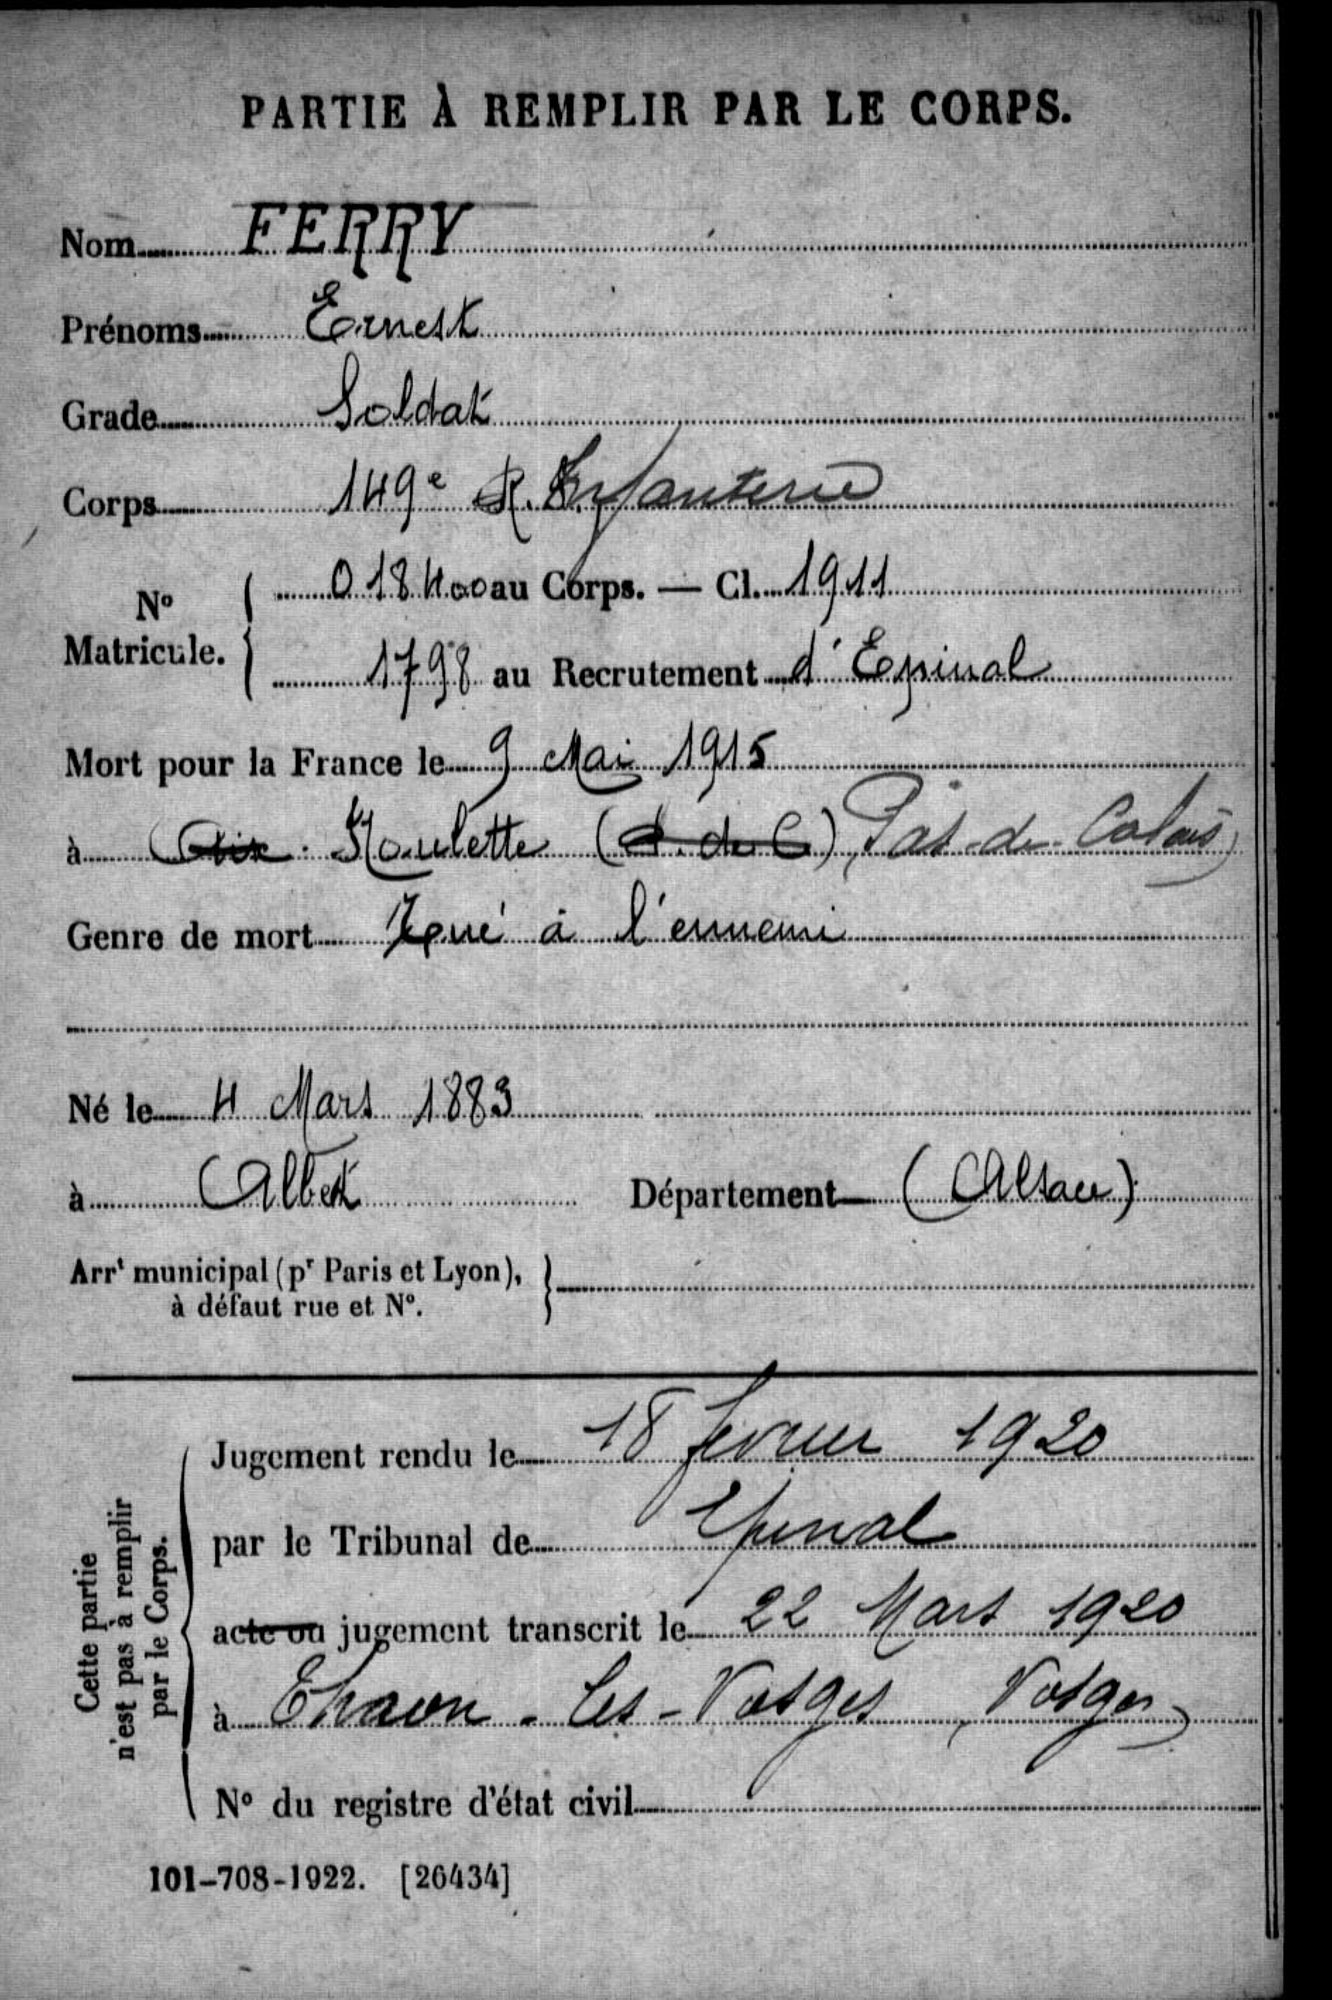 PARTIE À REMPLIR PAR LE CORPS.
Nom FERRY
Prénoms Ernest
Grade Soldat
Corps 149e R. Infanterie
No Matricule. 018400 au Corps. — Cl. 1911
1798 au Recrutement d'Epinal
Mort pour la France le 9 Mai 1915
à Aix. Noulette (P. de C) (Pas-de-Calais)
Genre de mort Tué à l'ennemi
Né le 4 Mars 1883
à Albet Département (Alsace)
Arrt municipal (pr Paris et Lyon), à défaut rue et No.
Cette partie n'est pas à remplir par le Corps.
Jugement rendu le 18 février 1920
par le Tribunal de Epinal
acte ou jugement transcrit le 22 Mars 1920
à Thaon-les-Vosges (Vosges)
No du registre d'état civil
101-708-1922. [26434]